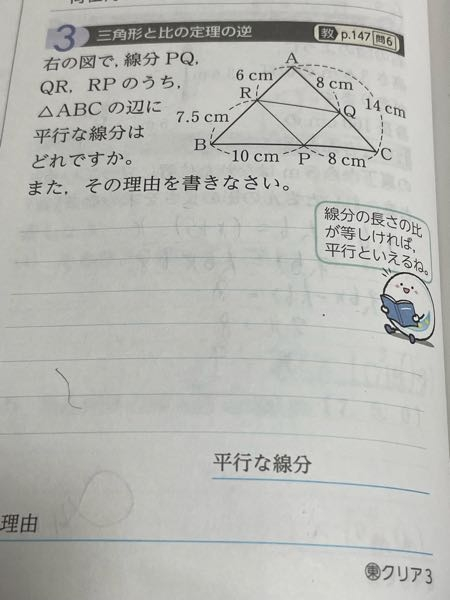 3 三角形と比の定理の逆 教 p.147 問6
右の図で，線分PQ，
QR，RPのうち，
△ABCの辺に
平行な線分は
どれですか。
また，その理由を書きなさい。
A
6 cm
8 cm
14 cm
R
Q
7.5 cm
B
P
C
10 cm
8 cm
線分の長さの比
が等しければ，
平行といえるね。
平行な線分
理由
東クリア3